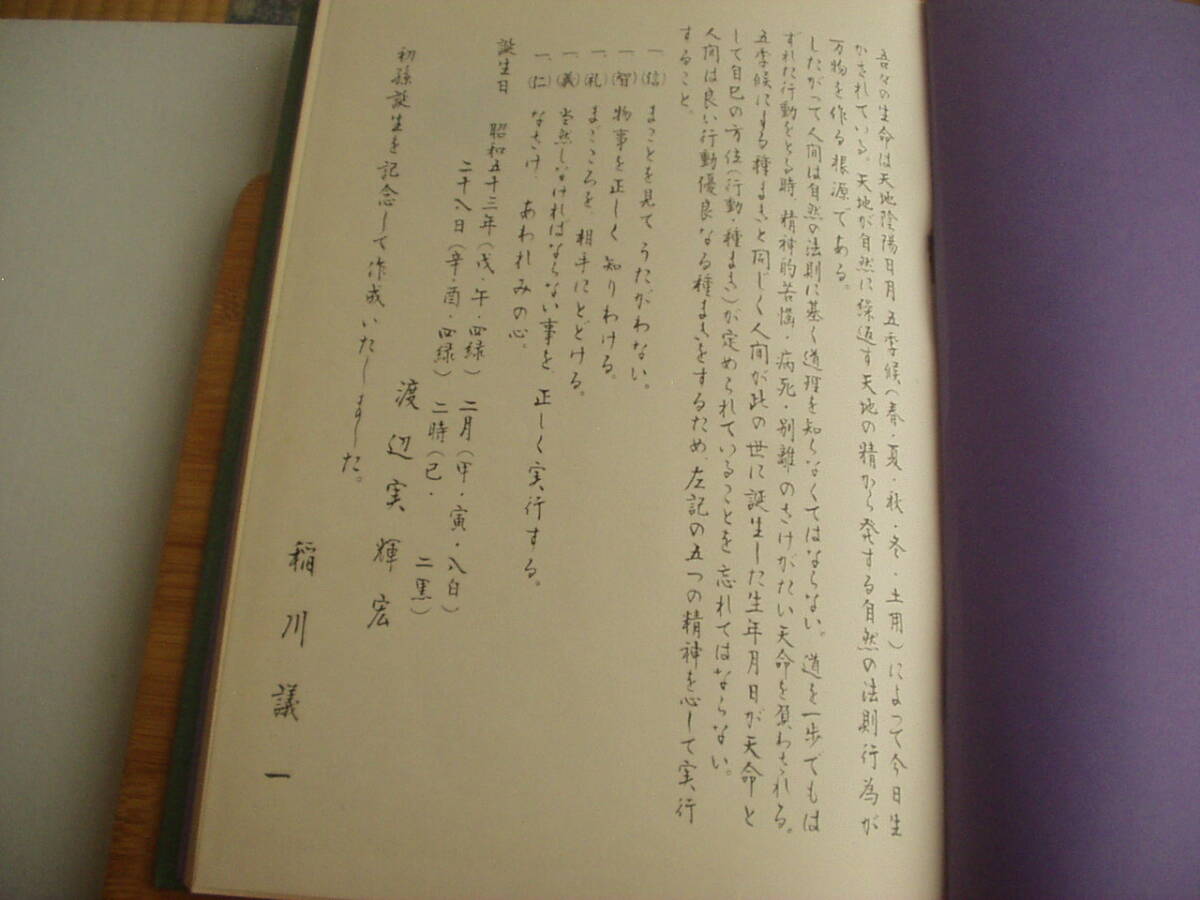 吾々の生命は天地陰陽日月五季候(春・夏・秋・冬・土用)によって今日生
かされている。天地が自然に繰返す天地の精から発する自然の法則行為が
万物を作る根源である。
したがって人間は自然の法則に基く道理を知らなくてはならない。道を一歩でもは
ずれた行動をとる時、精神的苦悩・病死・別離のさけがたい天命を負わされる。
五季候にする種まきと同じく人間が此の世に誕生した生年月日が天命と
して自己の方位(行動・種まき)が定められていることを忘れてはならない。
人間は良い行動優良なる種まきをするため、左記の五つの精神を心して実行
すること。
一、(信) まことを見て うたがわない。
一、(智) 物事を正しく 知りわける。
一、(礼) まごころを、相手にとどける。
一、(義) 当然しなければならない事を、正しく実行する。
一、(仁) なさけ、あわれみの心。
誕生日 昭和五十三年(戊・午・四緑) 二月(甲・寅・八白)
二十八日(辛・酉・四緑) 二時(己・ 二黒)
渡辺実輝宏
初孫誕生を記念して作成いたしました。
稲川議一